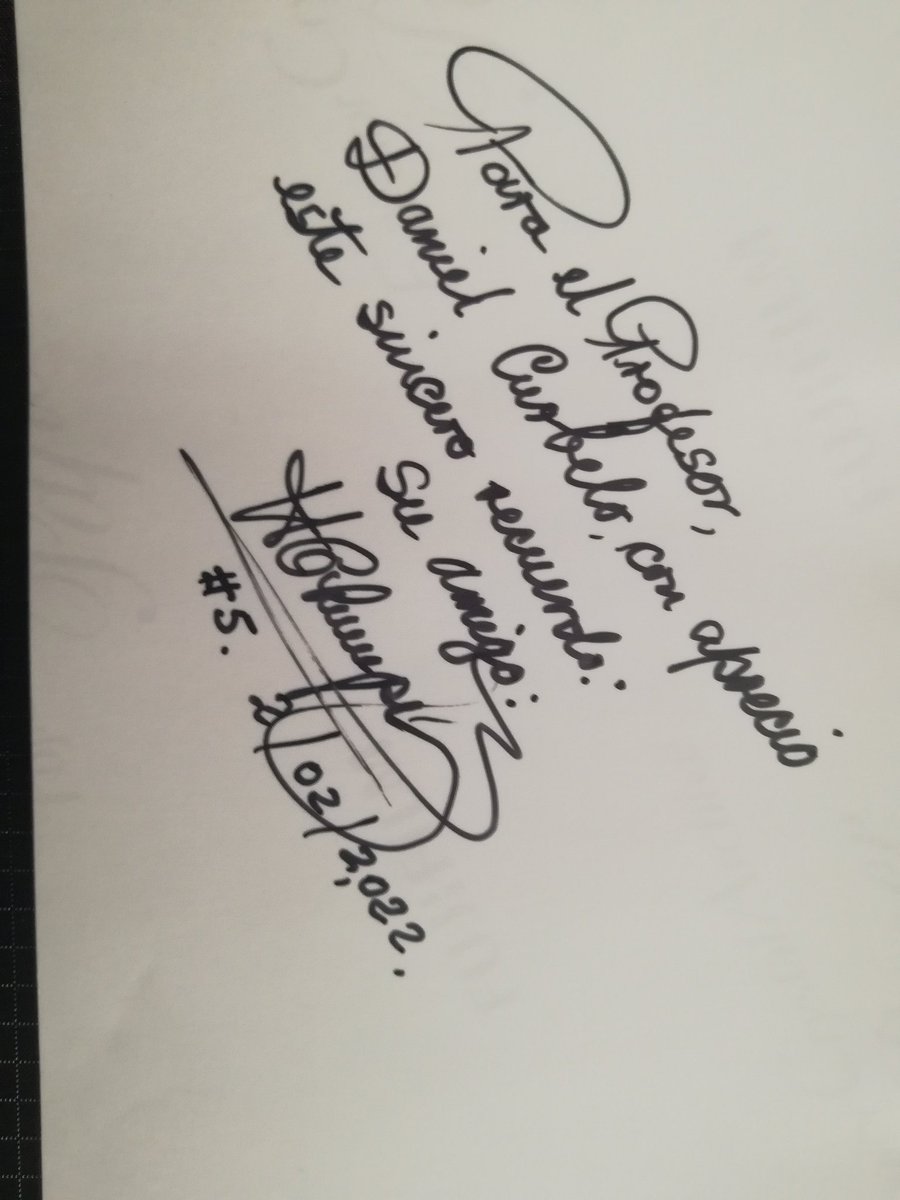 Para el Profesor,
Daniel Curbelo, con aprecio
este sincero recuerdo:
Su amigo:
#5.
2/02/2,022.